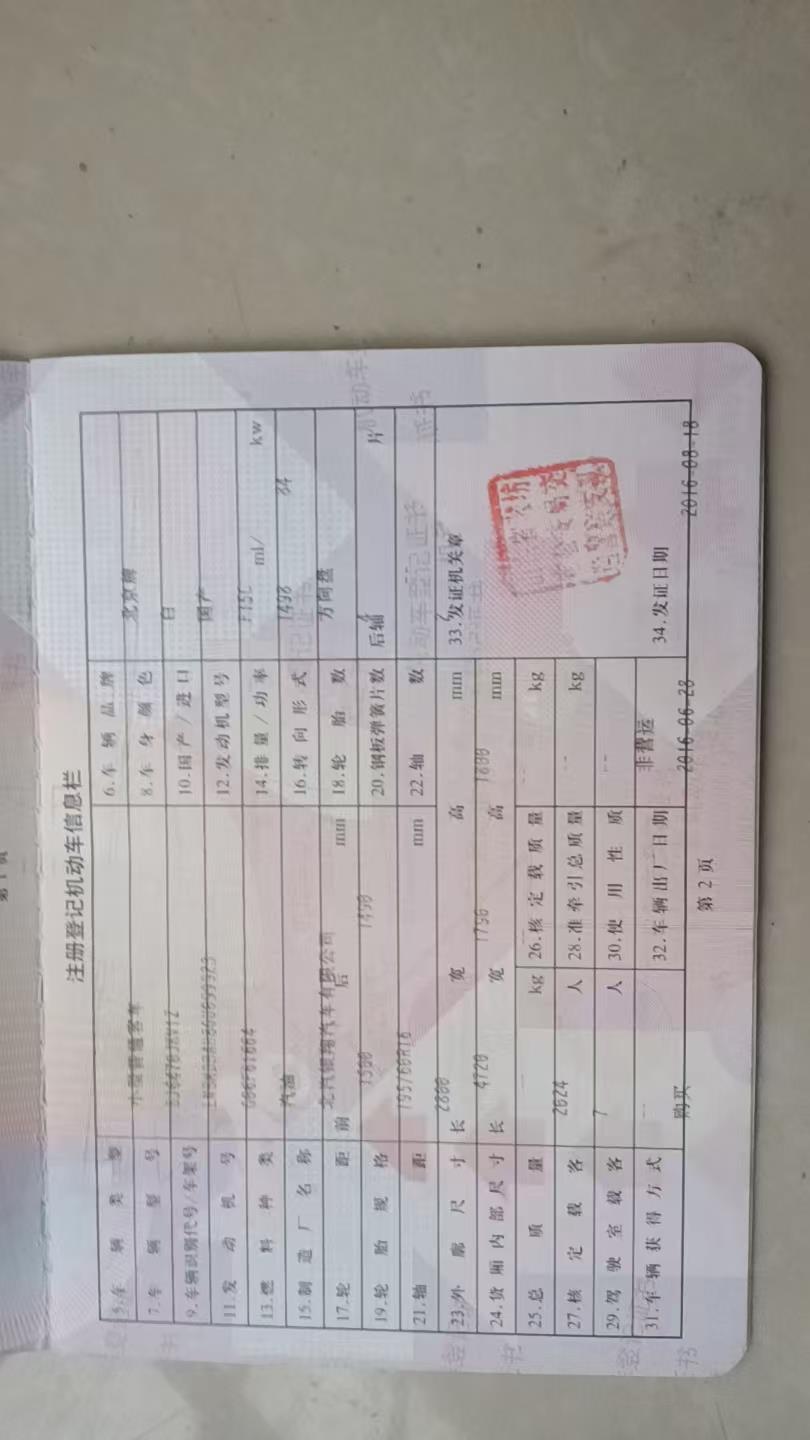 注册登记机动车信息栏
5.车辆类型 小型普通客车 6.车辆品牌 北京牌
7.车辆型号 8.车身颜色 白
9.车辆识别代号/车架号 10.国产/进口 国产
11.发动机号 12.发动机型号
13.燃料种类 汽油 14.排量/功率 1498 ml/ 84 kw
15.制造厂名称 北汽银翔汽车有限公司 16.转向形式 方向盘
17.轮距 前 1500 后 1490 mm 18.轮胎数
19.轮胎规格 195/60R16 20.钢板弹簧片数 后轴 片
21.轴距 2800 mm 22.轴数
23.外廓尺寸 长 4720 宽 1790 高 1800 mm 33.发证机关章
24.货厢内部尺寸 长 宽 高 mm
25.总质量 2024 kg 26.核定载质量 kg
27.核定载客 7 人 28.准牵引总质量 kg
29.驾驶室载客 人 30.使用性质 非营运
31.车辆获得方式 购买 32.车辆出厂日期 2016-06-28 34.发证日期 2016-08-18
第 2 页